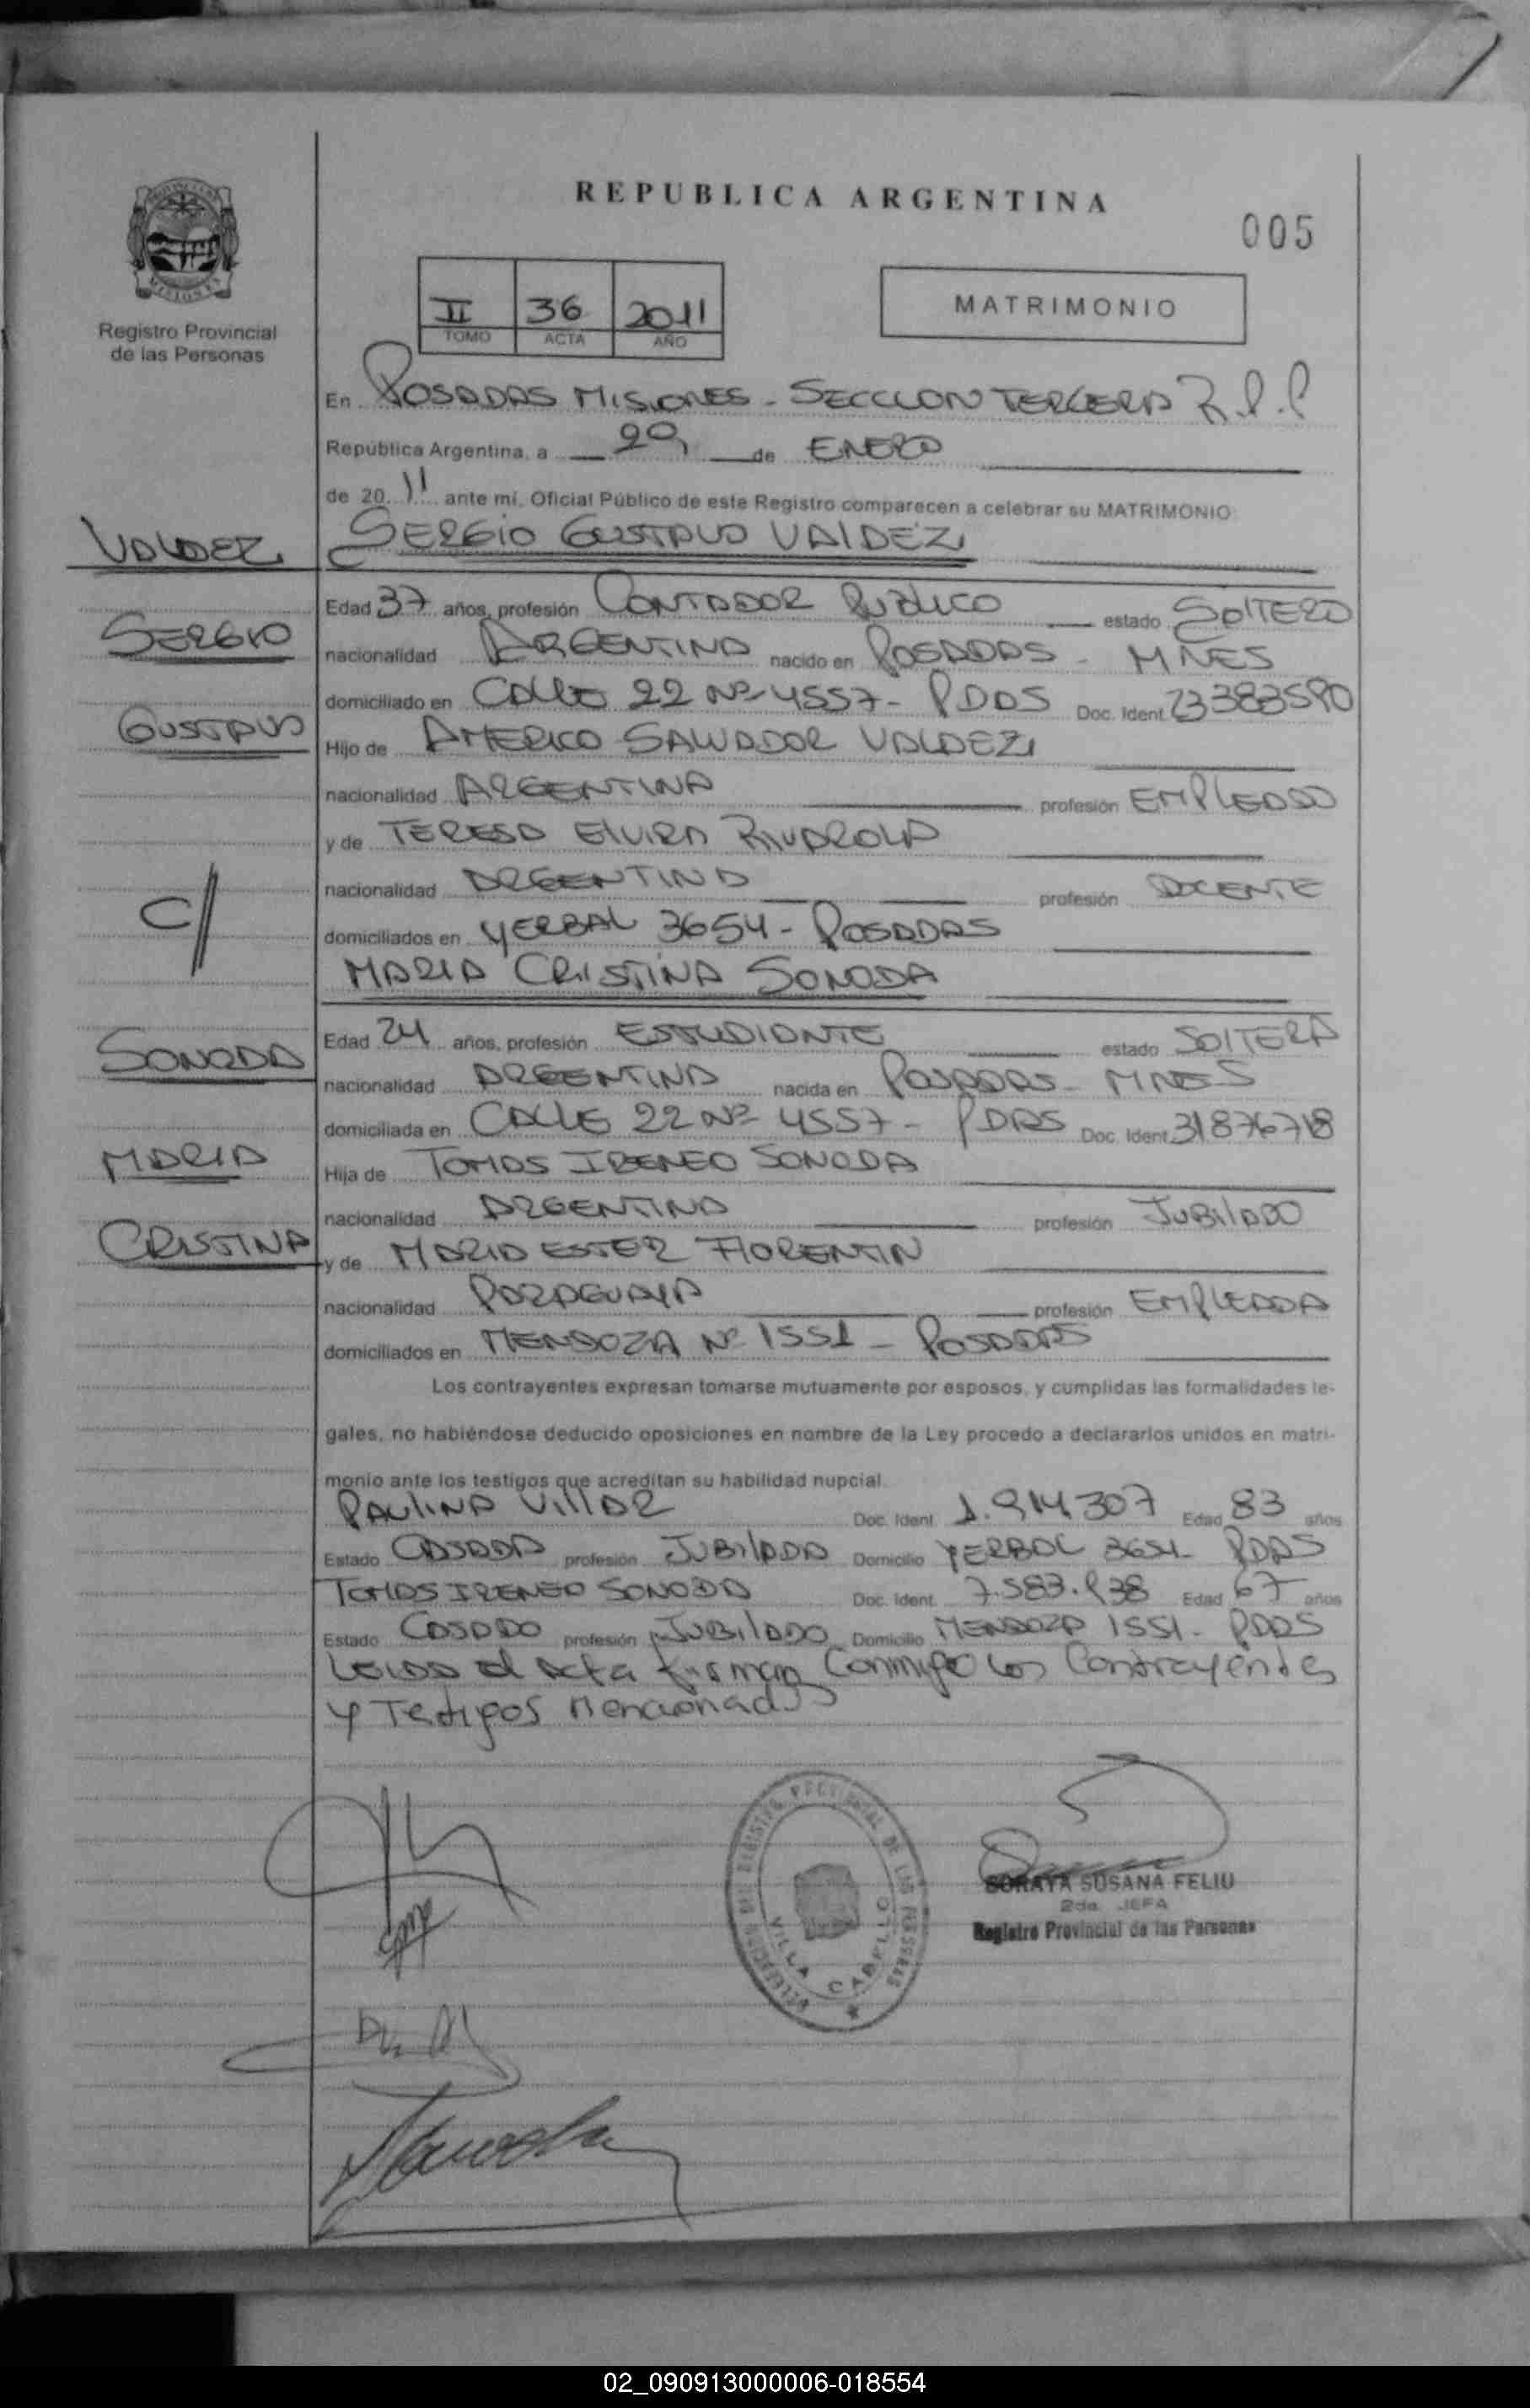 REPUBLICA ARGENTINA
005
II 36 2011
TOMO ACTA AÑO
MATRIMONIO
MISIONES
Registro Provincial
de las Personas
En POSADAS MISIONES - SECCION TERCERA R.P.P
República Argentina, a 20 de ENERO
de 2011 ante mí, Oficial Público de este Registro comparecen a celebrar su MATRIMONIO
VALDEZ SERGIO GUSTAVO VALDEZ
Edad 37 años, profesión CONTADOR PUBLICO estado SOLTERO
SERGIO
nacionalidad ARGENTINA nacido en POSADAS - MNES
domiciliado en CALLE 22 Nº 4557 - PDAS Doc. Ident. 23383590
GUSTAVO
Hijo de AMERICO SALVADOR VALDEZ
nacionalidad ARGENTINA profesión EMPLEADO
y de TERESA ELVIRA RIVAROLA
nacionalidad ARGENTINA profesión DOCENTE
C/
domiciliados en YERBAL 3654 - POSADAS
MARIA CRISTINA SONODA
Edad 24 años, profesión ESTUDIANTE estado SOLTERA
SONODA
nacionalidad ARGENTINA nacida en POSADAS - MNES
domiciliada en CALLE 22 Nº 4557 - PDAS Doc. Ident. 31876718
MARIA
Hija de TOMAS IRENEO SONODA
nacionalidad ARGENTINA profesión JUBILADO
CRISTINA
y de MARIA ESTER FLORENTIN
nacionalidad PARAGUAYA profesión EMPLEADA
domiciliados en MENDOZA Nº 1551 - POSADAS
Los contrayentes expresan tomarse mutuamente por esposos, y cumplidas las formalidades le-
gales, no habiéndose deducido oposiciones en nombre de la Ley procedo a declararlos unidos en matri-
monio ante los testigos que acreditan su habilidad nupcial.
PAULINA VILLAR Doc. Ident. 1.914.307 Edad 83 años
Estado CASADA profesión JUBILADA Domicilio YERBAL 3654 - PDAS
TOMAS IRENEO SONODA Doc. Ident. 7.583.938 Edad 67 años
Estado CASADO profesión JUBILADO Domicilio MENDOZA 1551 - PDAS
Leida el acta firman conmigo los contrayentes
y Testigos mencionados
DELEGACION DEL REGISTRO PROVINCIAL DE LAS PERSONAS
VILLA CABELLO
SORAYA SUSANA FELIU
2da. JEFA
Registro Provincial de las Personas
02_090913000006-018554